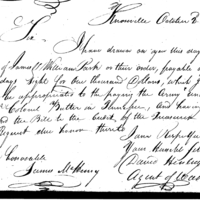 Knoxville October 2
Sir
I have drawn on you this day
of James & William Park or their order, payable a
days sight for One thousand Dollars, which I
be appropriated to the paying the Army und
Colonel Butler in Tennessee, and having
the Bill to the debit of the
Agent due honor thereto
I am Respectfu
Your humble Se
David Henley
Agent of War
Honorable
James McHenry